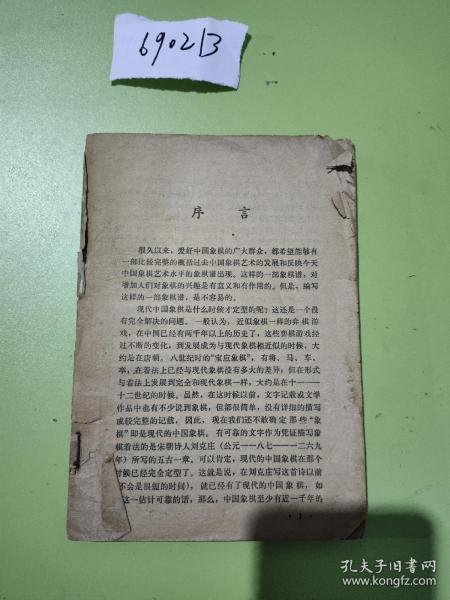 690213
序言
很久以来，爱好中国象棋的广大群众，都希望能够有
一部比较完整的概括过去中国象棋艺术的发展和反映今天
中国象棋艺术水平的象棋谱出现。这样的一部象棋谱，对
增加人们对象棋的兴趣是有意义和有作用的。但是，编写
这样的一部象棋谱，是不容易的。
现代中国象棋是什么时候才定型的呢？这还是一个没
有完全解决的问题。一般认为，近似象棋一样的弈棋游
戏，在中国已经有两千年以上的历史了，这些弈棋游戏经
过不断的变化，到发展成为与现代象棋相近似的时候，大
约是在唐朝。八世纪时的“宝应象棋”，有将、马、车、
卒，在着法上已经与现代象棋没有多大的差异；但在形式
与着法上发展到完全和现代象棋一样，大约是在十一——
十二世纪的时候。虽然，在这时候以前，文字记载或文学
作品中也有不少说到象棋，但都很简单，没有详细的描写
或较完整的记载，因此，现在我们还不敢确定那些“象
棋”即是现代的中国象棋。有可靠的文字作为凭证描写象
棋着法的是宋朝诗人刘克庄（公元一一八七——一二六九
年）所写的五古一章。可以肯定，现代中国象棋在那个
时候已经完全定型了。这就是说，在刘克庄写这首诗以前
不会是很短的时间），就已经有了现代的中国象棋，如
这一估计可靠的话，那么，中国象棋至少有近一千年的
· 1 ·
孔夫子旧书网
www.kongfz.com